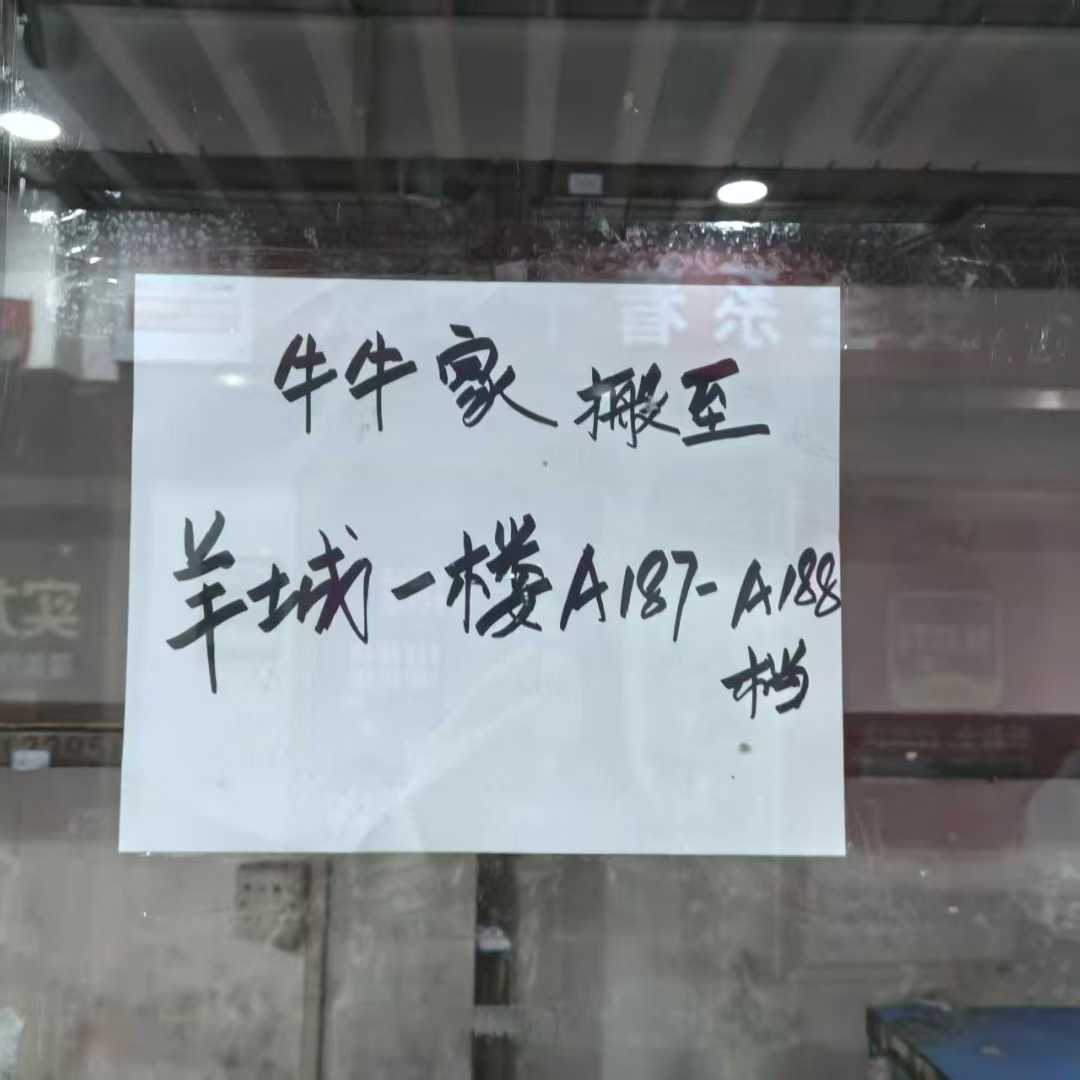 牛牛家 搬至
羊城一楼A187-A188
档